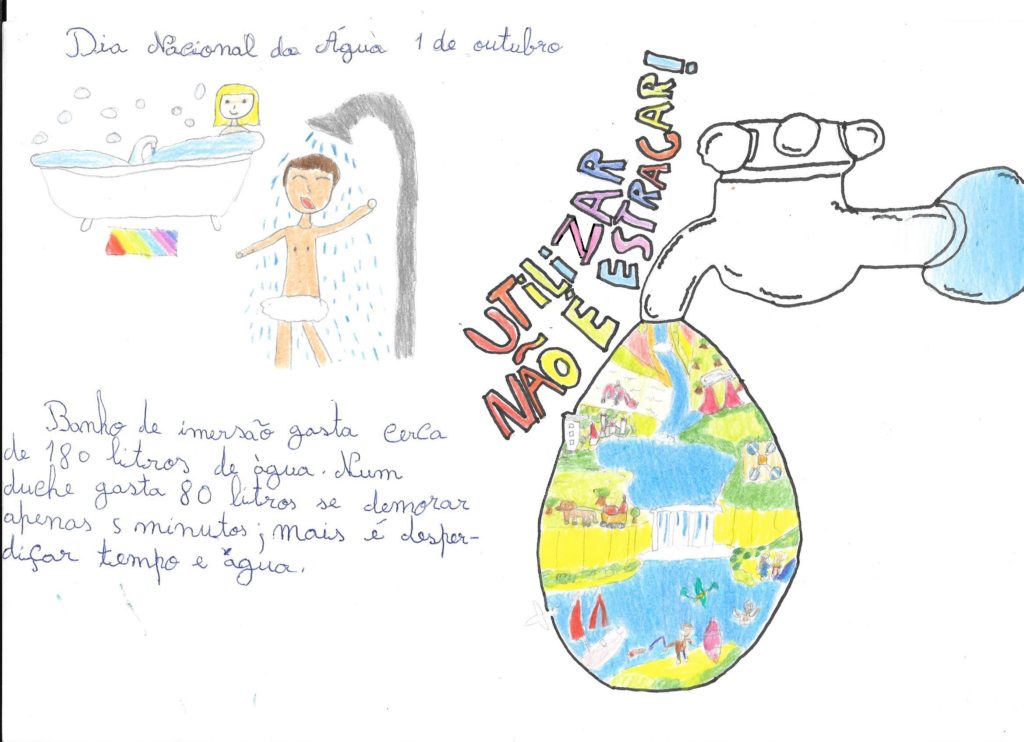 Dia Nacional da Água 1 de outubro
UTILIZAR
NÃO É ESTRAGAR!
Banho de imersão gasta cerca
de 180 litros de água. Num
duche gasta 80 litros se demorar
apenas 5 minutos; mais é desper-
diçar tempo e água.